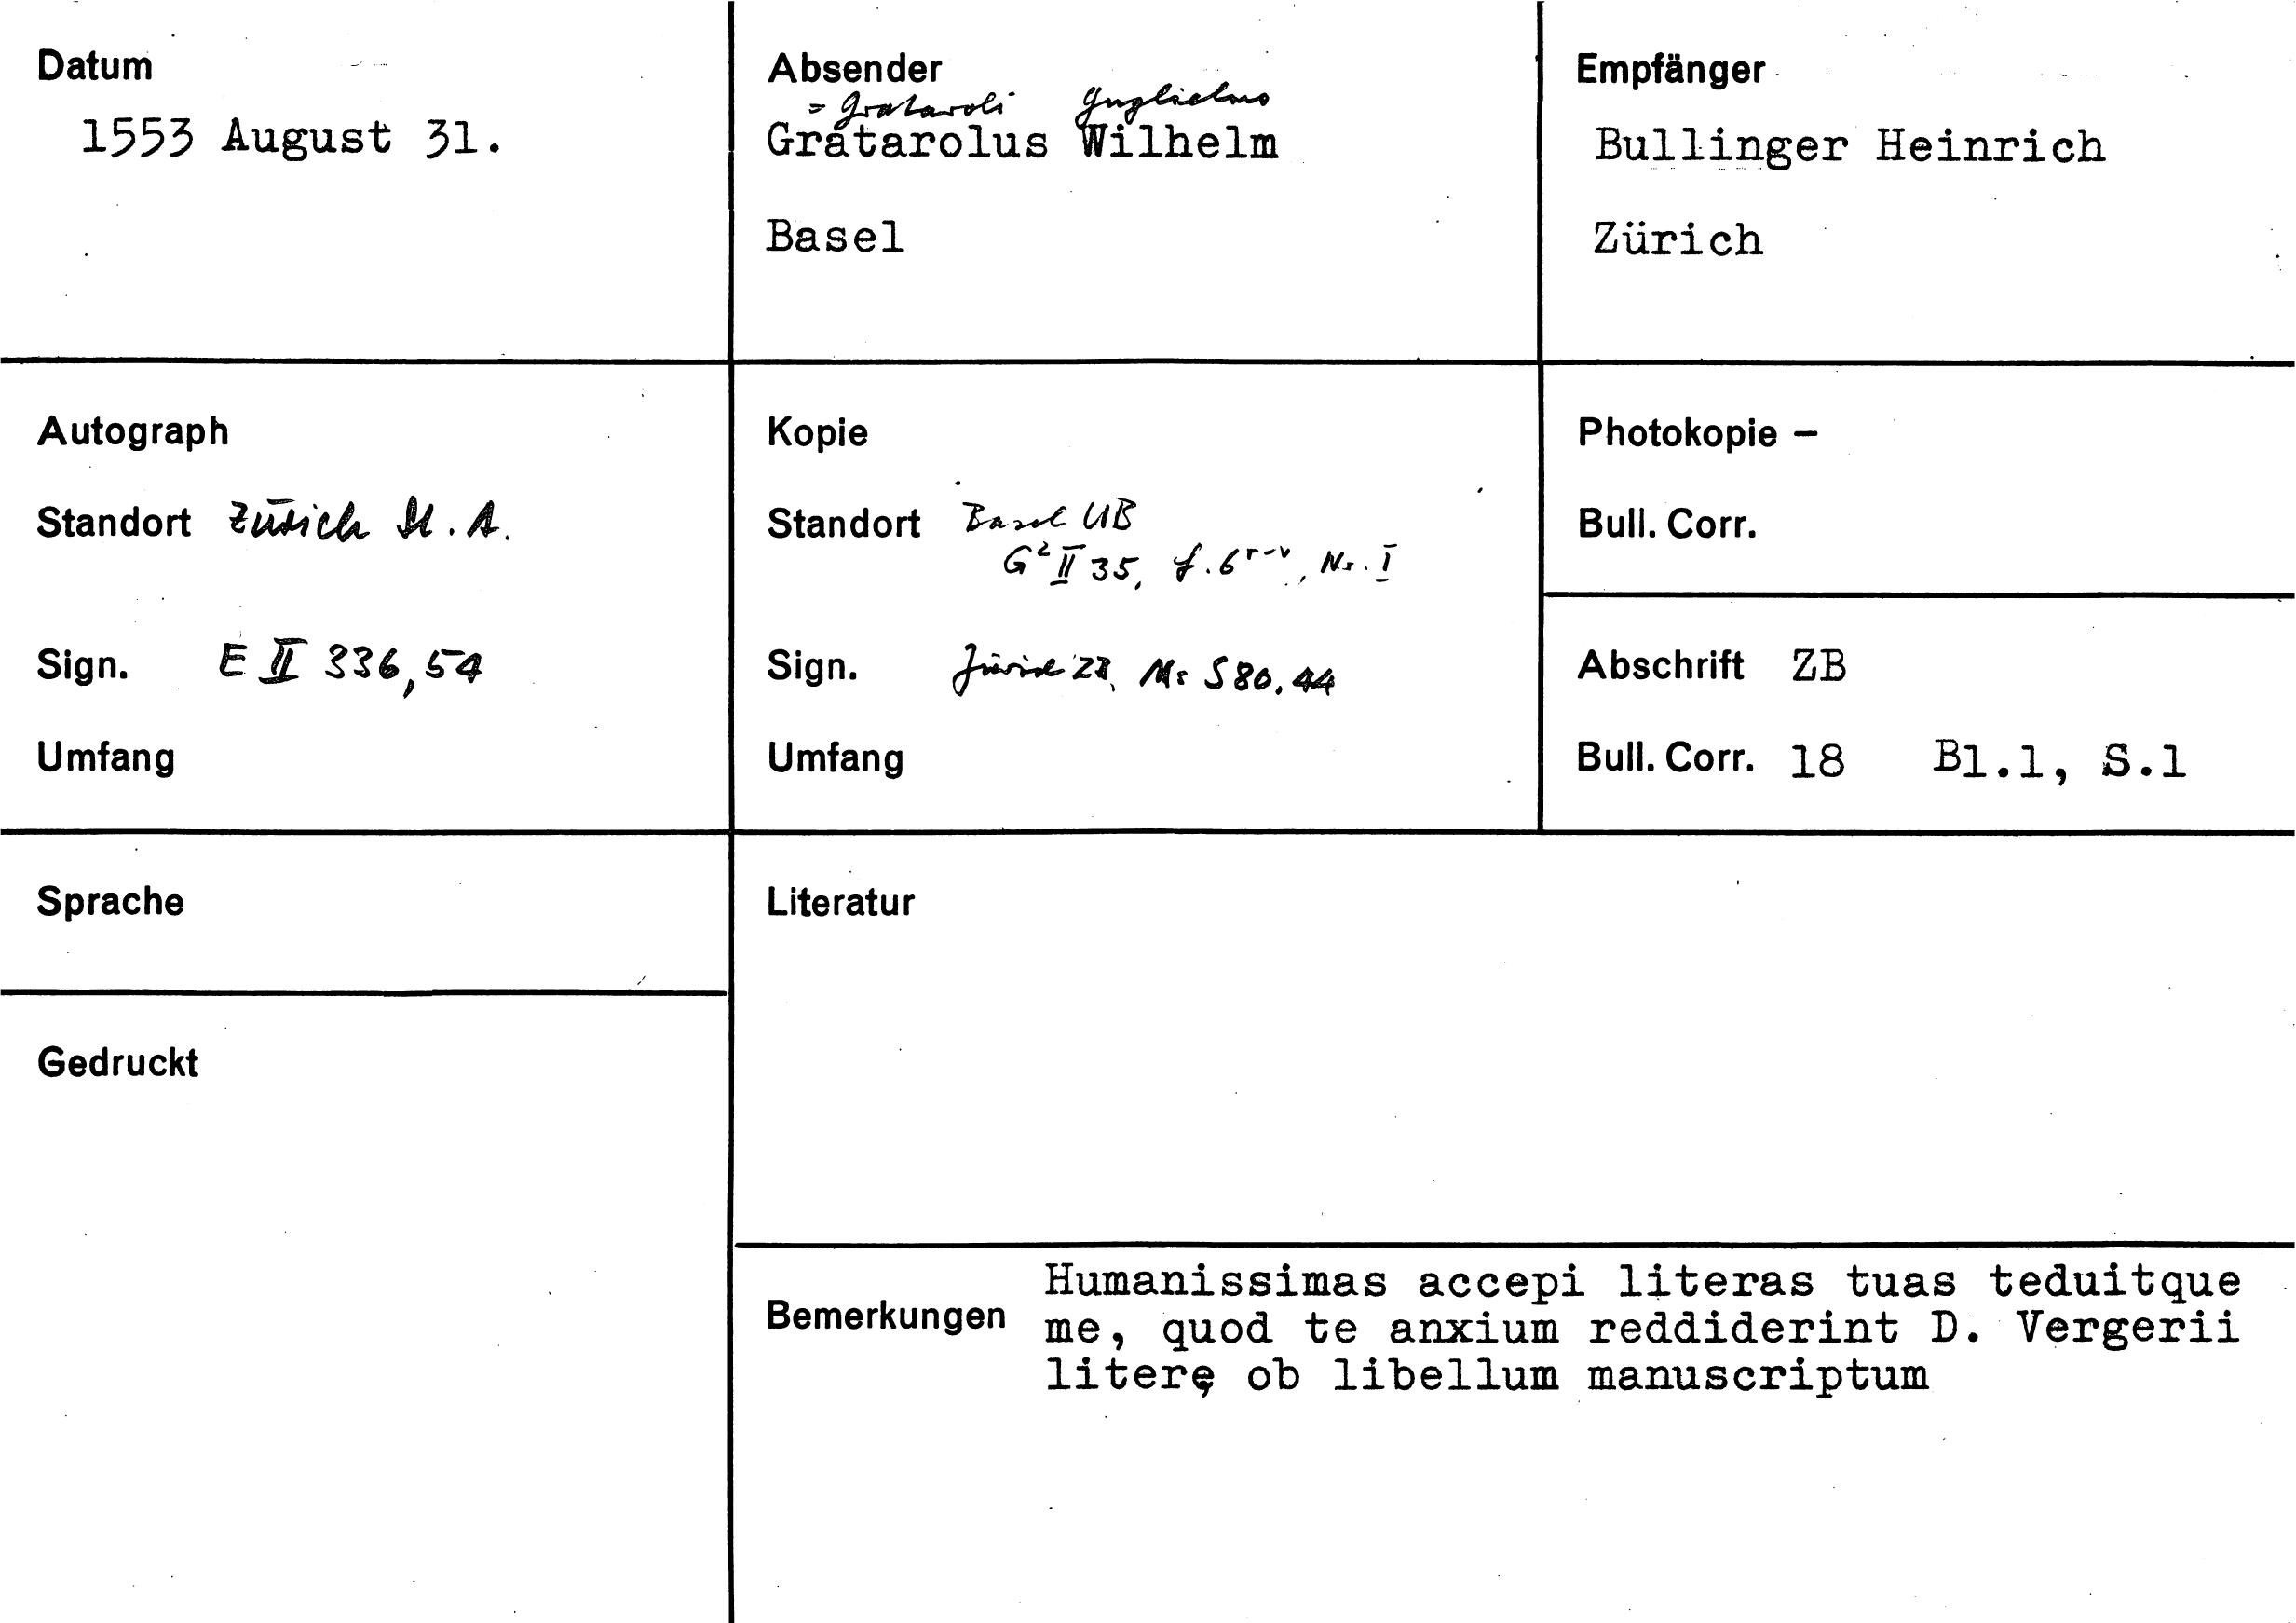 Datum
1553 August 31.
Absender
= Grataroli Guglielmo
Gratarolus Wilhelm
Basel
Empfänger
Bullinger Heinrich
Zürich
Autograph
Standort Zürich St. A.
Sign. E II 336,54
Umfang
Kopie
Standort Basel UB
G² II 35, f. 6r-v, Nr. I
Sign. Zürich ZB, Ms S 80, 44
Umfang
Photokopie –
Bull. Corr.
Abschrift ZB
Bull. Corr. 18 Bl.1, S.1
Sprache
Gedruckt
Literatur
Bemerkungen
Humanissimas accepi literas tuas teduitque
me, quod te anxium reddiderint D. Vergerii
literę ob libellum manuscriptum